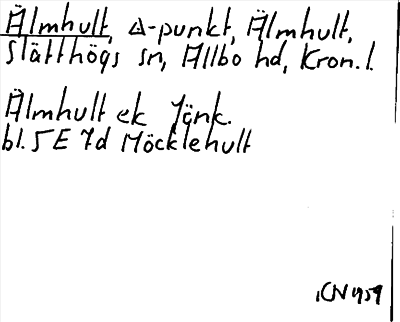 Älmhult, △-punkt, Älmhult,
Slätthögs sn, Allbo hd, Kron.l.
Älmhult ek Jönk.
bl. 5E 7d Möcklehult
ICN 1959